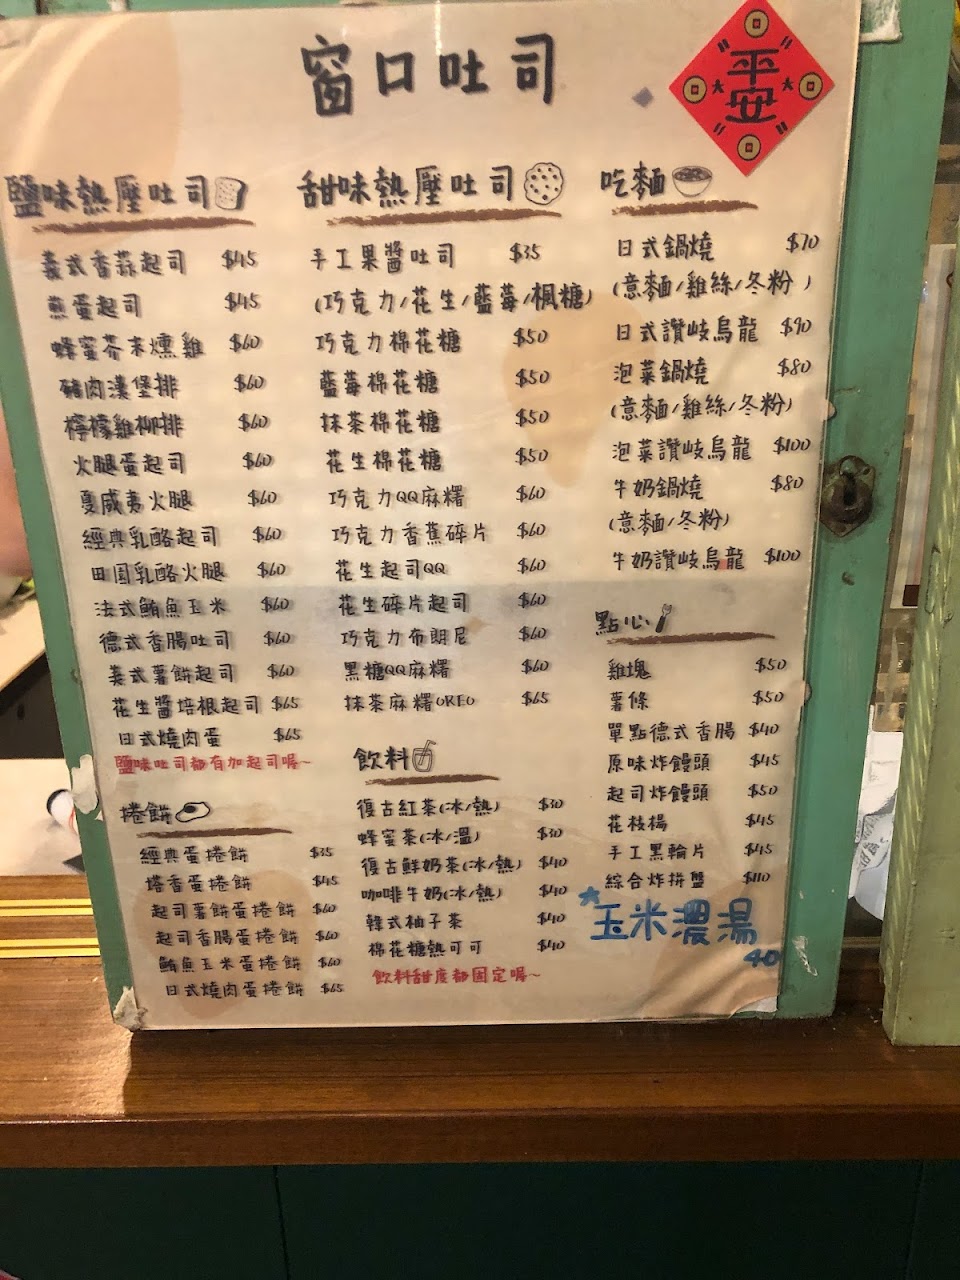 窗口吐司
平安
鹽味熱壓吐司
義式香蒜起司 $45
煎蛋起司 $45
蜂蜜芥末燻雞 $60
豬肉漢堡排 $60
檸檬雞柳排 $60
火腿蛋起司 $60
夏威夷火腿 $60
經典乳酪起司 $60
田園乳酪火腿 $60
法式鮪魚玉米 $60
德式香腸吐司 $60
美式薯餅起司 $60
花生醬培根起司 $65
日式燒肉蛋 $65
鹽味吐司都有加起司喔~
捲餅
經典蛋捲餅 $35
塔香蛋捲餅 $45
起司薯餅蛋捲餅 $60
起司香腸蛋捲餅 $60
鮪魚玉米蛋捲餅 $60
日式燒肉蛋捲餅 $65
甜味熱壓吐司
手工果醬吐司 $35
(巧克力/花生/藍莓/楓糖)
巧克力棉花糖 $50
藍莓棉花糖 $50
抹茶棉花糖 $50
花生棉花糖 $50
巧克力QQ麻糬 $60
巧克力香蕉碎片 $60
花生起司QQ $60
花生碎片起司 $60
巧克力布朗尼 $60
黑糖QQ麻糬 $60
抹茶麻糬OREO $65
飲料
復古紅茶(冰/熱) $30
蜂蜜茶(冰/溫) $30
復古鮮奶茶(冰/熱) $40
咖啡牛奶(冰/熱) $40
韓式柚子茶 $40
棉花糖熱可可 $40
飲料甜度都固定喔~
吃麵
日式鍋燒 $70
(意麵/雞絲/冬粉)
日式讚岐烏龍 $90
泡菜鍋燒 $80
(意麵/雞絲/冬粉)
泡菜讚岐烏龍 $100
牛奶鍋燒 $80
(意麵/冬粉)
牛奶讚岐烏龍 $100
點心
雞塊 $50
薯條 $50
單點德式香腸 $40
原味炸饅頭 $45
起司炸饅頭 $50
花枝楊 $45
手工黑輪片 $45
綜合炸拼盤 $110
玉米濃湯
40